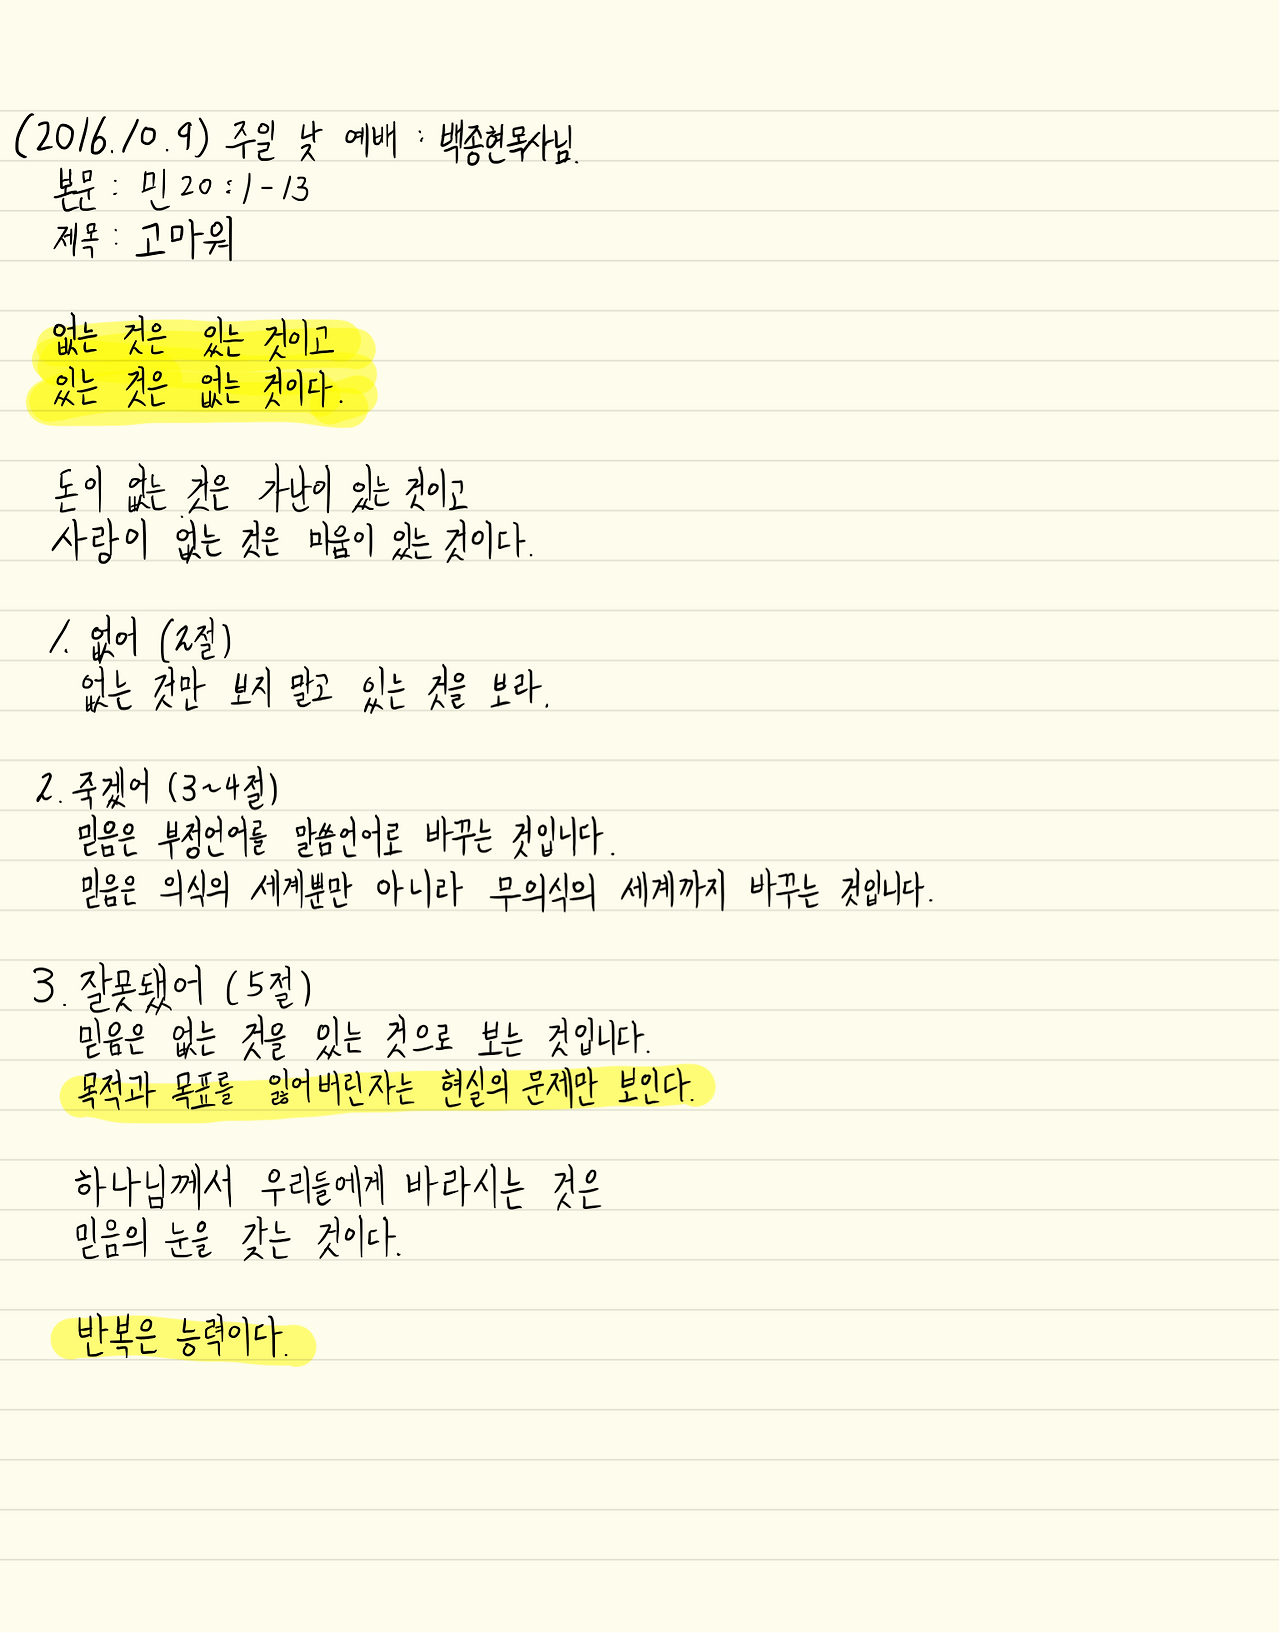 (2016.10.9) 주일 낮 예배 : 백종현목사님.
본문 : 민 20 : 1 - 13
제목 : 고마워
없는 것은 있는 것이고
있는 것은 없는 것이다.
돈이 없는 것은 가난이 있는 것이고
사랑이 없는 것은 미움이 있는 것이다.
1. 없어 (2절)
없는 것만 보지 말고 있는 것을 보라.
2. 죽겠어 (3~4절)
믿음은 부정언어를 말씀언어로 바꾸는 것입니다.
믿음은 의식의 세계뿐만 아니라 무의식의 세계까지 바꾸는 것입니다.
3. 잘못됐어 (5절)
믿음은 없는 것을 있는 것으로 보는 것입니다.
목적과 목표를 잃어버린자는 현실의 문제만 보인다.
하나님께서 우리들에게 바라시는 것은
믿음의 눈을 갖는 것이다.
반복은 능력이다.